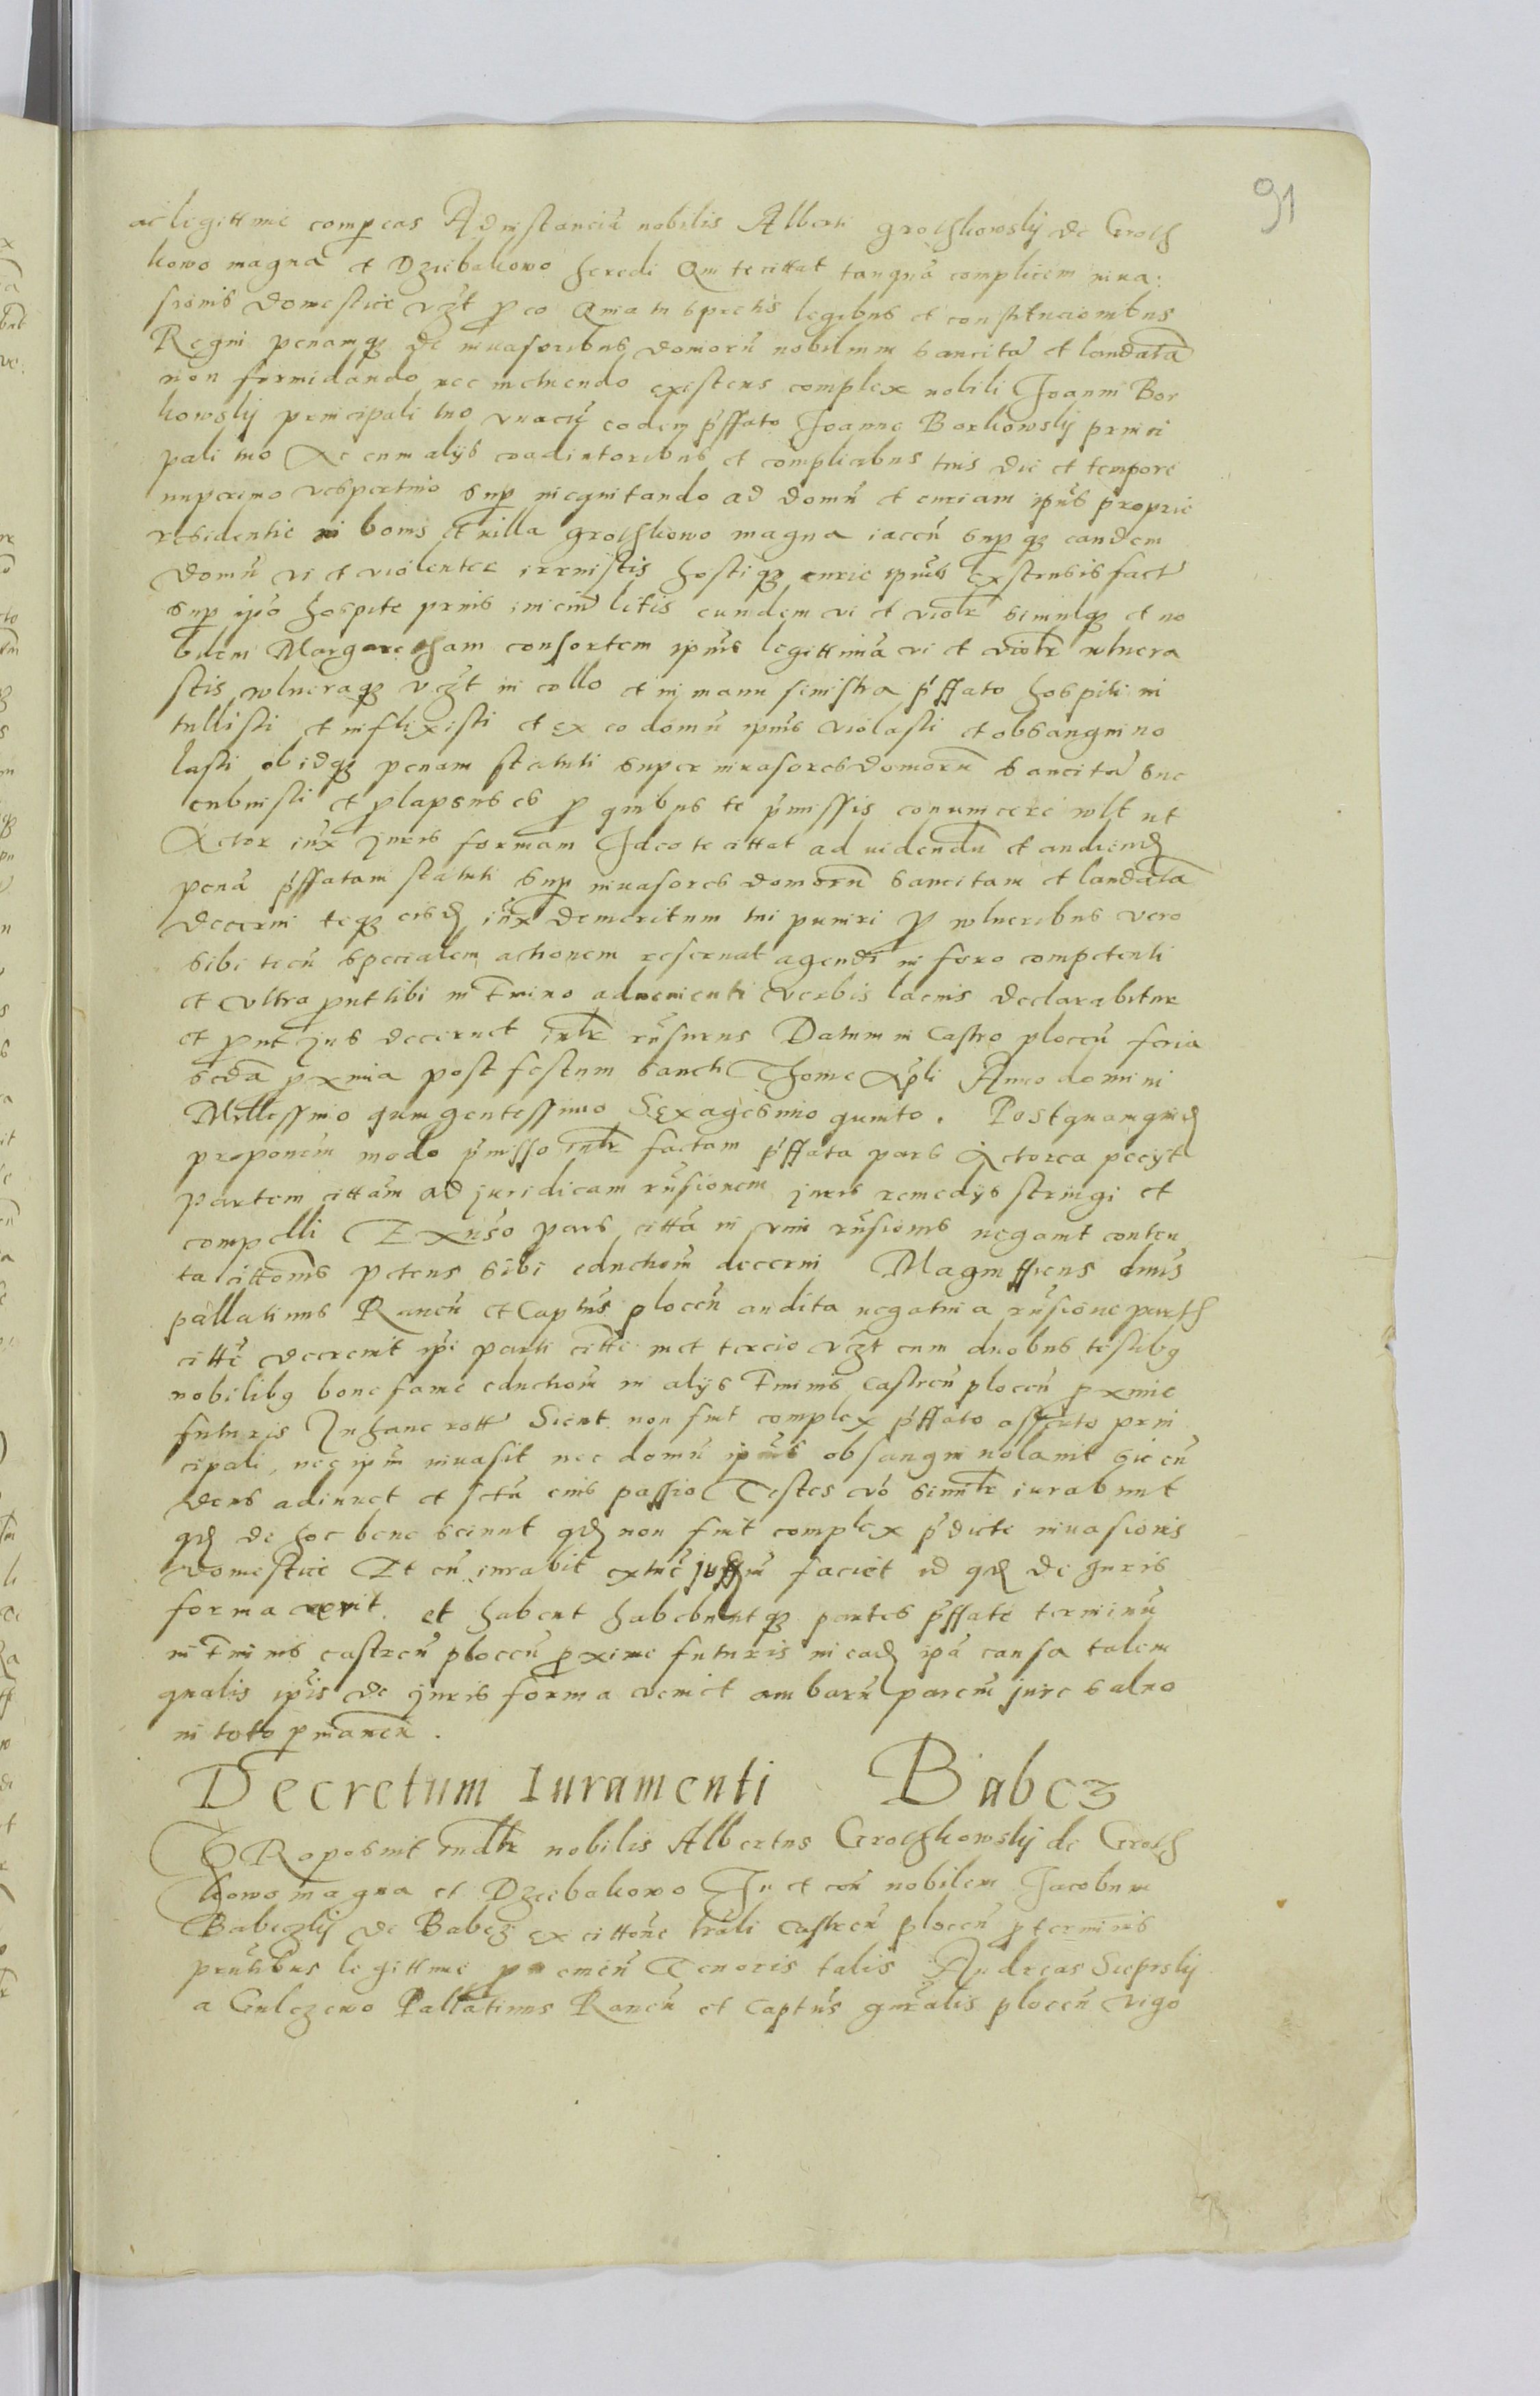 91
ac legittime compeas Ad instanciā nobilis Alberti grothkowskỹ de Groth
kowo magna et Dziebakowo heredi Qui te cittat tanquā complicem inua:
sionis domestice vzt p eo Quia tu spretis legibus et constitucionibus
Regni penamq de inuasoribus domorū nobilium sancitā et laudatā
non formidando nec metuendo existens complex nobili Joanni Bor
kowskỹ principali tuo vnacū eodem pffato Joanne Borkowskỹ princi
pali tuo Ac cum alijs coadiutoribus et complicibus tuis die et tempore
nuperimo vespertino sup inequitando ad domū et curiam ipius proprie
residentie in bonis et villa grothkowo magna iaceñ sup q eandem
domū vi et violenter irruistis hostiq curie ipius extrusis fact
sup ipo hospite prius iniciū litis eundem vi et violr simulq et no
bilem Margaretham consortem ipius legittimā vi et violr vulnera
stis vulneraq vzt in collo et in manu sinistra pffato hospiti in
tullisti et inflixisti et ex eo domū ipius violasti et obsanguino
lasti ob idq penam statuti super inuasores domorū sancitā suc
cubuisti et plapsus es p quibus te pmissis conuincere vult ut
Actor iux juris formam Ideo te cittat ad uidendū et audiend
penā pffatam statuti sup inuasores domorū sancitam et laudatā
decerni teq eisd iux demeritum tui puniri p vulneribus vero
sibi tecū specialem actionem reseruat agendi in foro competenti
et vltra put tibi in tmino aduenienti verbis lacius declarabitur
et put jus decernet iudr rūsurus Datum in Castro ploceñ feria
scda pxima post festum sancti Thome Apli Anno domini
Millessimo quingentessimo Sexagesimo quinto . Postquamquid
proponeū modo pmisso iudr factam pffata pars Actorea peciit
partem cittām ad juridicam rūsionem juris remedijs stringi et
compelli Exuso pars cittā in vim rūsionis negauit conten
ta cittōnis petens sibi eductiom decerni Magnifficus dnus
pallatinus Raueñ et Captus ploceñ audita negatiua rūsione parth
citte decreuit ipi parti citte met tercio vzt cum duobus testibq
nobilibq bone fame eductiom in alijs tminis castreñ ploceñ pxime
futuris In hanc rott Sicut non fuit complex pffato asserto prin
cipali, nec ipm inuasit nec domū ipius obsanguinolauit sic eū
deus adiuuet et sctā eius passio Testes vō similr iurabunt
qd de hoc bene sciunt qd non fuit complex pdicte inuasionis
domestice Et cū iurabit extunc faciet id qd de juris
forma et habent habebuntq partes pffate terminū
in tminis castreñ ploceñ pxime futuris in ead ipa causa talem
qualis ipis de juris forma veniet ambarū parciū jure saluo
in toto pmaneñ .
Decretum Iuramenti Babez
PRoposuit iudlr nobilis Albertus Grothkowskỹ de Groth
kowo magna et Dziebakowo In et con nobilem Jacobum
Babezkỹ de Babez ex cittōne lrāli castreñ ploceñ p terminis
pnūbus legittime emeñ Tenoris talis Andreas Sieprskỹ
a Gulczewo Pallatinus Raueñ et captus gnralis ploceñ vigo